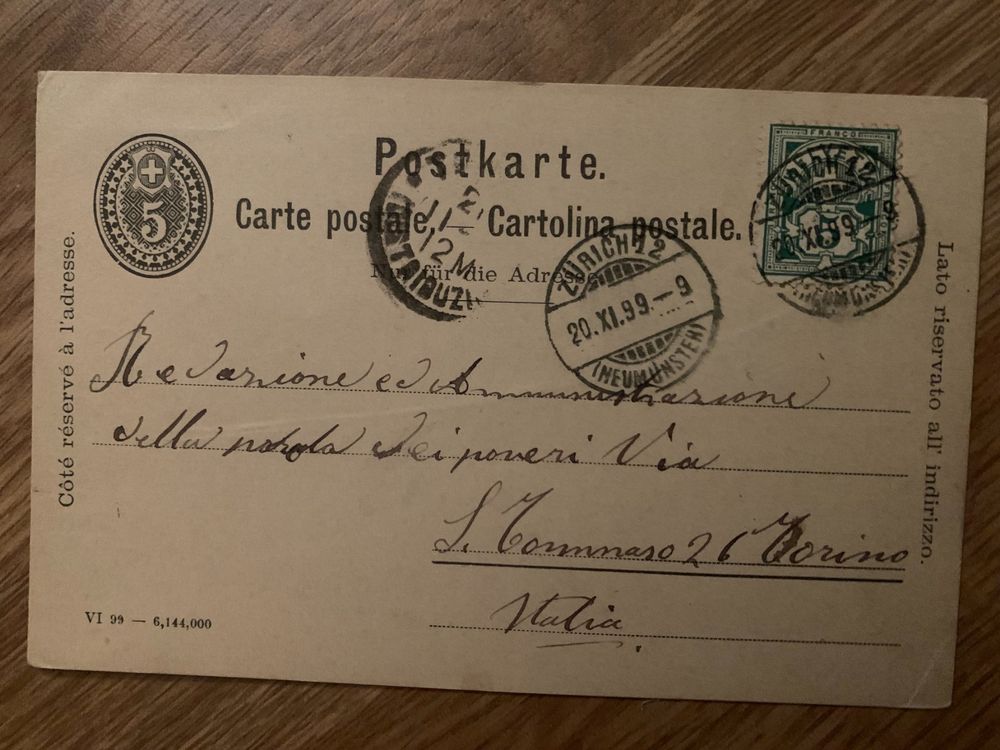 5
Postkarte.
Carte postale. — Cartolina postale.
Nur für die Adresse.
FRANCO
ZÜRICH 12
20.XI.99.-9
(NEUMÜNSTER)
5
ZÜRICH 12
20.XI.99.-9
(NEUMÜNSTER)
11
12M
TRIBUZI
Côté réservé à l'adresse.
Lato riservato all' indirizzo.
Redazione ed Amministrazione
della parola dei poveri Via
S. Tommaso 26 Torino
Italia
VI 99 — 6,144,000